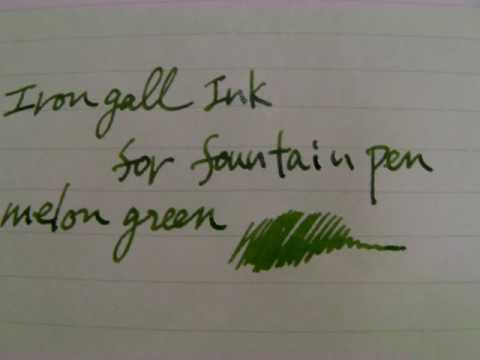 Iron gall Ink
for fountain pen
melon green